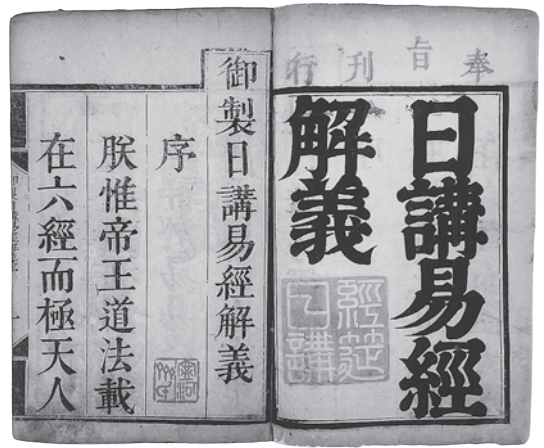 奉旨刊行
日講易經
解義
經筵
日講
御製日講易經解義
序
朕惟帝王道法載
在六經而極天人